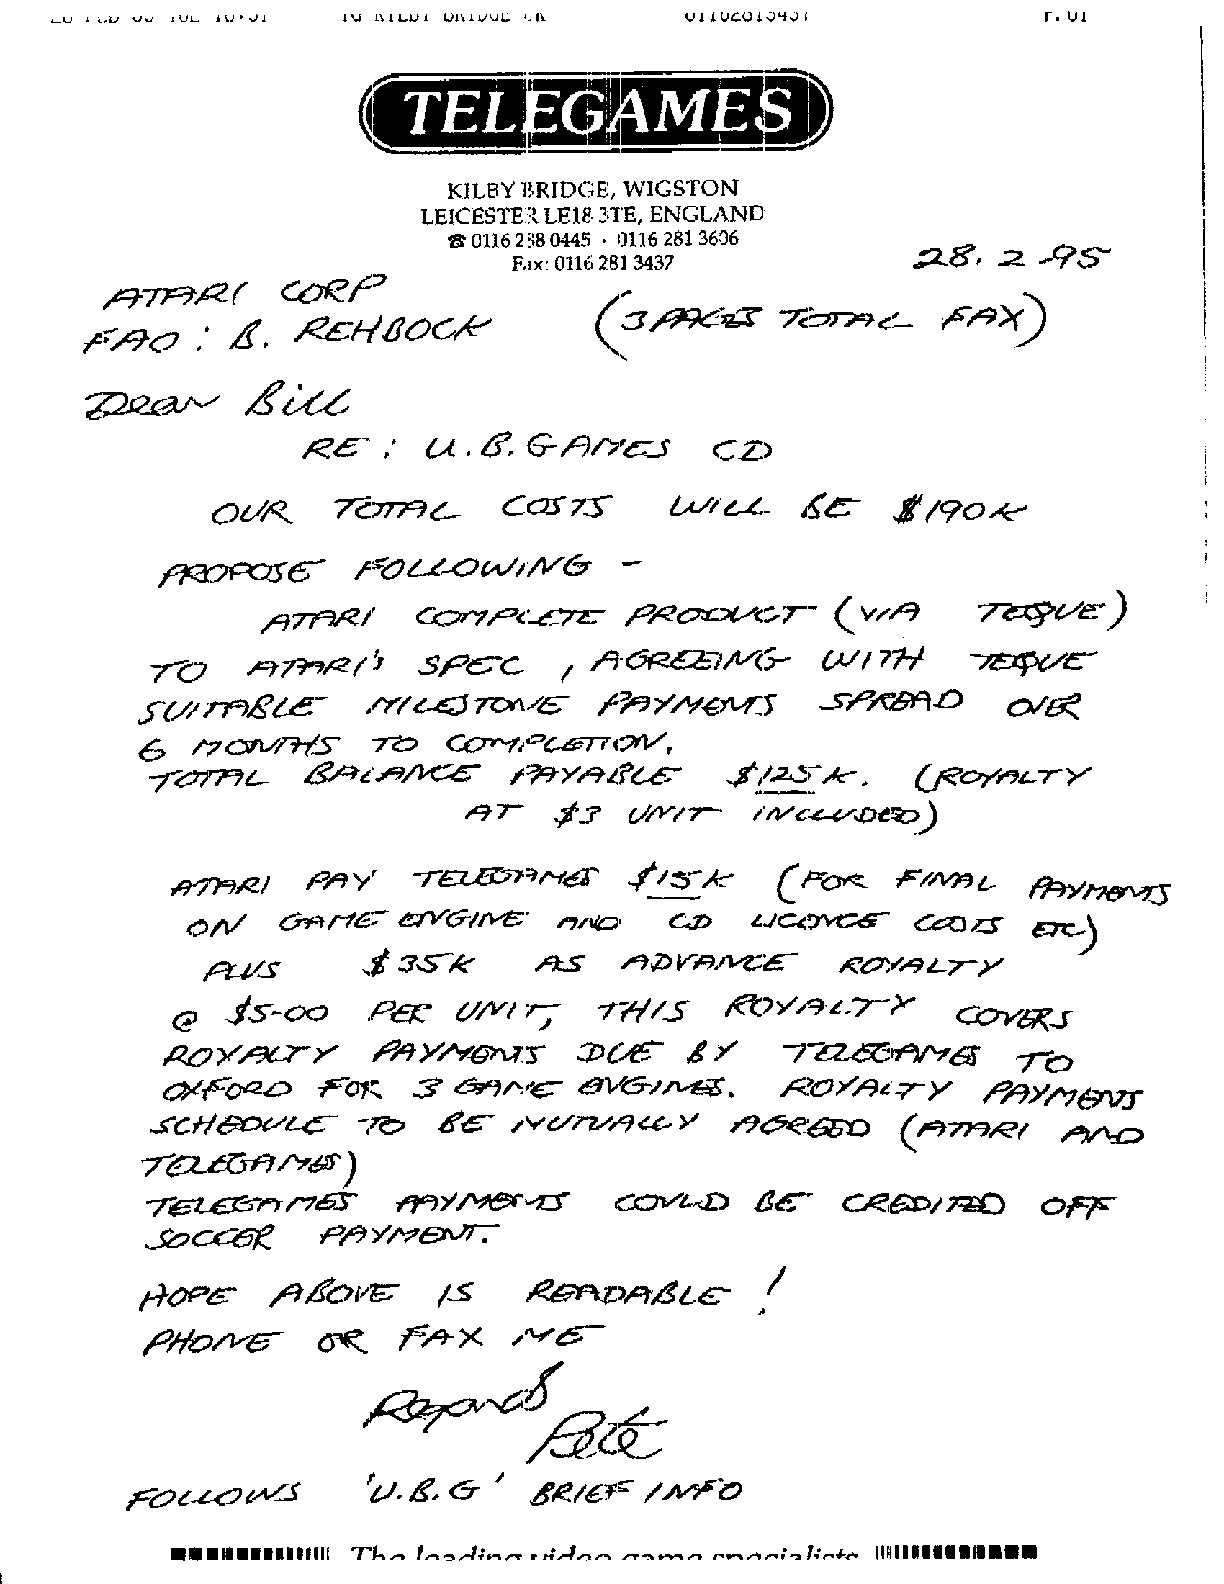 TELEGAMES
KILBY BRIDGE, WIGSTON
LEICESTER LE18 3TE, ENGLAND
☎ 0116 288 0445 · 0116 281 3606
Fax: 0116 281 3437
28.2.95
ATARI CORP
FAO: B. REHBOCK (3 PAGES TOTAL FAX)
Dear Bill
RE: U.B. GAMES CD
OUR TOTAL COSTS WILL BE $190K
PROPOSE FOLLOWING -
ATARI COMPLETE PRODUCT (VIA TEQUE)
TO ATARI'S SPEC, AGREEING WITH TEQUE
SUITABLE MILESTONE PAYMENTS SPREAD OVER
6 MONTHS TO COMPLETION.
TOTAL BALANCE PAYABLE $125K. (ROYALTY
AT $3 UNIT INCLUDED)
ATARI PAY TELEGAMES $15K (FOR FINAL PAYMENTS
ON GAME ENGINE AND CD LICENCE COSTS ETC)
PLUS $35K AS ADVANCE ROYALTY
@ $5-00 PER UNIT, THIS ROYALTY COVERS
ROYALTY PAYMENTS DUE BY TELEGAMES TO
OXFORD FOR 3 GAME ENGINES. ROYALTY PAYMENTS
SCHEDULE TO BE MUTUALLY AGREED (ATARI AND
TELEGAMES)
TELEGAMES PAYMENTS COULD BE CREDITED OFF
SOCCER PAYMENT.
HOPE ABOVE IS READABLE!
PHONE OR FAX ME
Regards
Pete
FOLLOWS 'U.B.G' BRIEF INFO
The leading video game specialists